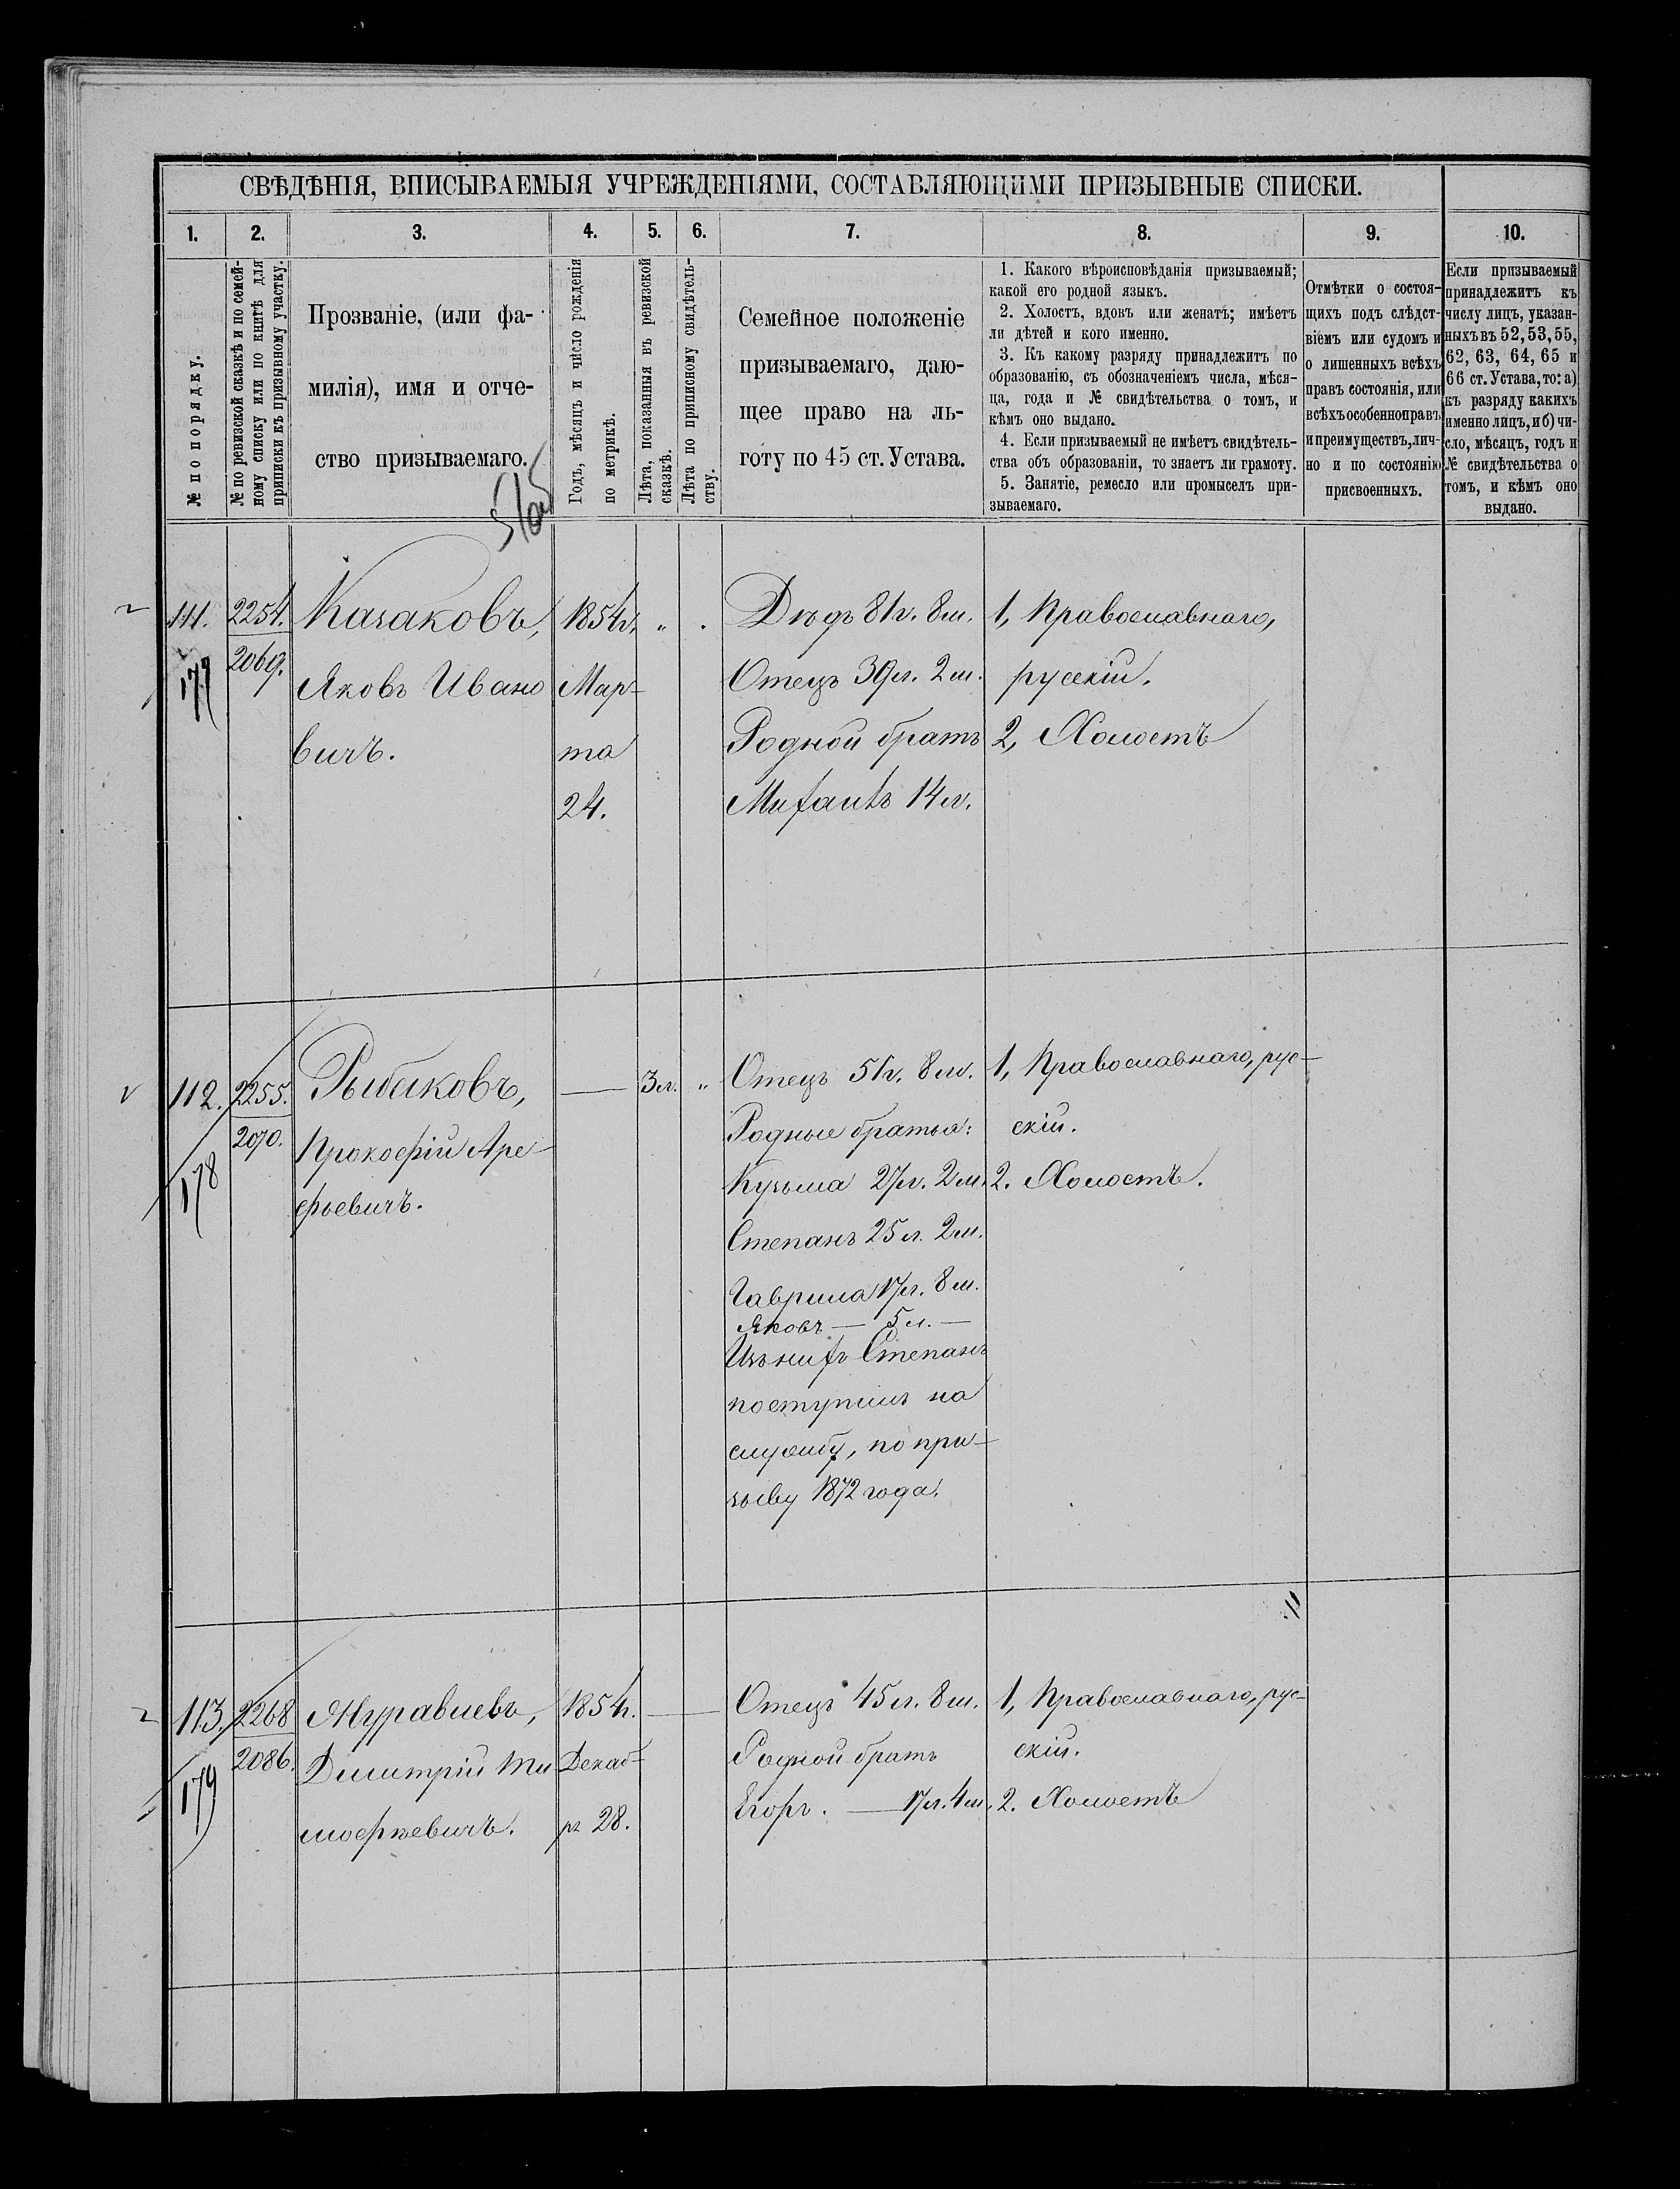 СВѢДѢНІЯ, ВПИСЫВАЕМЫЯ УЧРЕЖДЕНІЯМИ, СОСТАВЛЯЮЩИМИ ПРИЗЫВНЫЕ СПИСКИ.
1. 2. 3. 4. 5. 6. 7. 8. 9. 10.
№ по порядку.
№ по ревизской сказкѣ и по семей-
ному списку или по книгѣ для
приписки къ призывному участку.
Прозваніе, (или фа-
милія), имя и отче-
ство призываемаго.
Годъ, мѣсяцъ и число рожденія
по метрикѣ.
Лѣта, показанныя въ ревизской
сказкѣ.
Лѣта по приписному свидѣтель-
ству.
Семейное положеніе
призываемаго, даю-
щее право на ль-
готу по 45 ст. Устава.
1. Какого вѣроисповѣданія призываемый;
какой его родной языкъ.
2. Холостъ, вдовъ или женатъ; имѣетъ
ли дѣтей и кого именно.
3. Къ какому разряду принадлежитъ по
образованію, съ обозначеніемъ числа, мѣся-
ца, года и № свидѣтельства о томъ, и
кѣмъ оно выдано.
4. Если призываемый не имѣетъ свидѣтель-
ства объ образованіи, то знаетъ ли грамоту.
5. Занятіе, ремесло или промыселъ при-
зываемаго.
Отмѣтки о состоя-
щихъ подъ слѣдст-
віемъ или судомъ и
о лишенныхъ всѣхъ
правъ состоянія, или
всѣхъ особенно правъ
и преимуществъ, лич-
но и по состоянію
присвоенныхъ.
Если призываемый
принадлежитъ къ
числу лицъ, указан-
ныхъ въ 52, 53, 55,
62, 63, 64, 65 и
66 ст. Устава, то: а)
къ разряду какихъ
именно лицъ, и б) чи-
сло, мѣсяцъ, годъ и
№ свидѣтельства о
томъ, и кѣмъ оно
выдано.
111.
177
2254.
2069.
Казаковъ,
Яковъ Ивано
вичъ.
1854г.
Мар-
та
24.
" .
Дѣдъ 81г. 8м.
Отецъ 39л. 2м.
Родной братъ
Михаилъ 14л.
1, Православнаго,
русскій.
2, Холостъ
112.
178
2255.
2070.
Рыбаковъ,
Прокофій Аре-
фьевичъ.
— 3л. "
Отецъ 51г. 8м.
Родные братья:
Кузьма 27л. 2м.
Степанъ 25л. 2м.
Гаврила 17л. 8м.
Яковъ — 5л. —
Изъ нихъ Степанъ
поступилъ на
службу, по при-
зыву 1872 года.
1, Православнаго, рус-
скій.
2. Холостъ.
113.
179
2268
2086.
Журавлевъ,
Димитрій Ти
мофѣевичъ.
1854г.
Декаб-
ря 28.
— —
Отецъ 45л. 8м.
Родной братъ
Егоръ. — 17л. 4м.
1, Православнаго, рус-
скій.
2. Холостъ